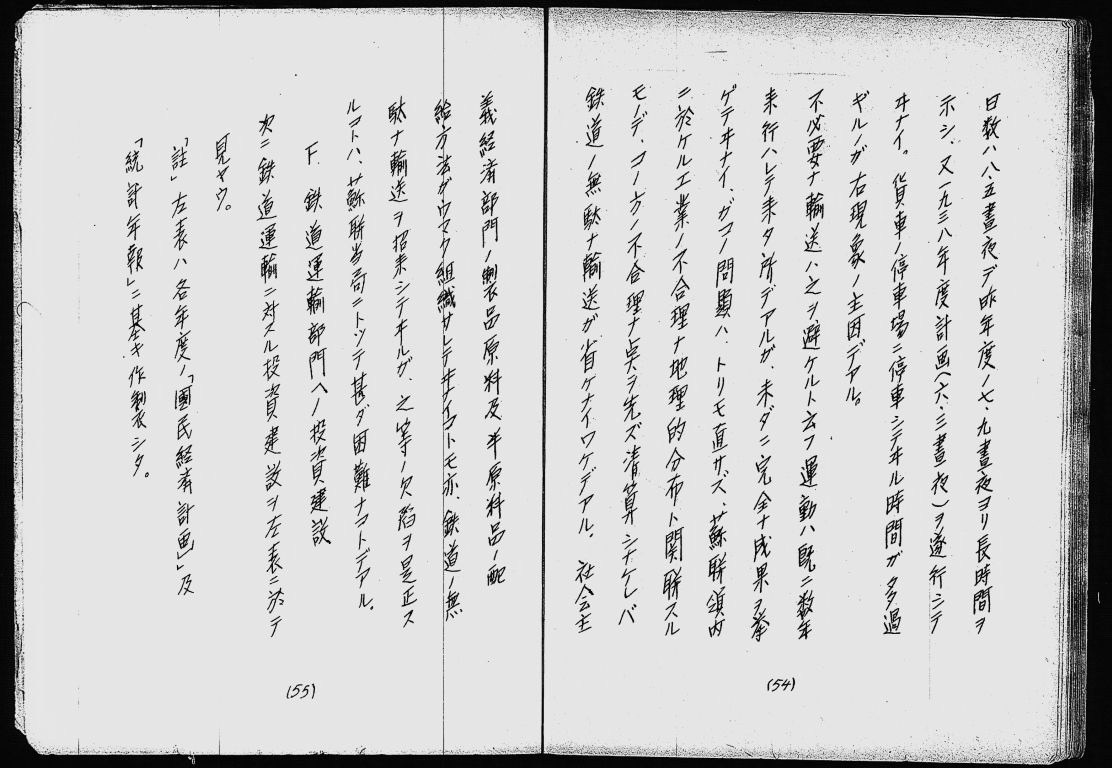 日数ハ八・五晝夜デ昨年度ノ七・九晝夜ヨリ長時間ヲ
示シ、又一九三八年度計画(六・三晝夜)ヲ遂行シテ
ヰナイ。貨車ノ停車場ニ停車シテヰル時間ガ多過
ギルノガ右現象ノ主因デアル。
不必要ナ輸送ハ之ヲ避ケルト云フ運動ハ既ニ数年
来行ハレテ来タ所デアルガ、未ダニ完全ナ成果ヲ挙
ゲテヰナイ、ガコノ問題ハ、トリモ直サズ、蘇聯領内
ニ於ケル工業ノ不合理ナ地理的分布ト関聯スル
モノデ、コノ方ノ不合理ナ点ヲ先ズ清算シナケレバ
鉄道ノ無駄ナ輸送ガ省ケナイワケデアル。社会主
(54)
義経済部門ノ製品原料及半原料品ノ配
給方法ガウマク組織サレテヰナイコトモ亦、鉄道ノ無
駄ナ輸送ヲ招来シテヰルガ、之等ノ欠陥ヲ是正ス
ルコトハ、蘇聯当局ニトツテ甚ダ困難ナコトデアル。
F 鉄道運輸部門ヘノ投資建設
次ニ鉄道運輸ニ対スル投資建設ヲ左表ニ於テ
見ヤウ。
「註」左表ハ各年度ノ「國民経済計画」及
「統計年報」ニ基キ作製シタ。
(55)